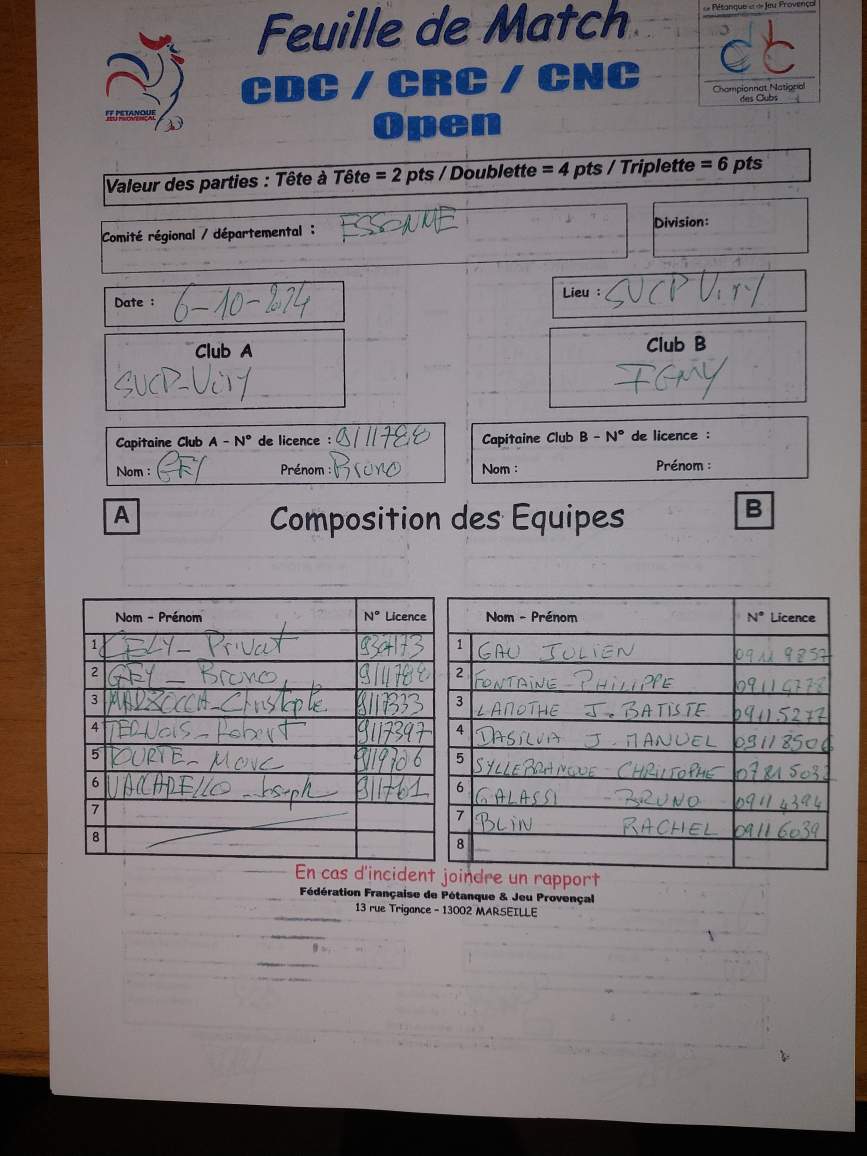 Feuille de Match
CDC / CRC / CNC
Open
FF PETANQUE
JEU PROVENÇAL
Pétanque et de Jeu Provençal
Championnat National
des Clubs
Valeur des parties : Tête à Tête = 2 pts / Doublette = 4 pts / Triplette = 6 pts
Comité régional / départemental : ESSONNE
Division:
Date : 6-10-2024
Lieu : SUCP Viry
Club A
SUCP-Viry
Club B
IGNY
Capitaine Club A - N° de licence : 9111788
Nom : GEY Prénom : Bruno
Capitaine Club B - N° de licence :
Nom : Prénom :
A Composition des Equipes B
Nom - Prénom N° Licence
1 CELY - Privat
2 GEY - Bruno 9111788
3 MARZOCCA - Christophe 9117333
4 TERNOIS - Robert 9117397
5 TOURTE - Marc 9119706
6 VACCARELLO - Joseph 911761
7
8
Nom - Prénom N° Licence
1 GAU JULIEN 09119857
2 FONTAINE - PHILIPPE
3 LAMOTHE J. BATISTE 09115277
4 DASILVA J. MANUEL 09118506
5 SYLLEBRANQUE CHRISTOPHE 07815032
6 GALASSI BRUNO 09114394
7 BLIN RACHEL 09116039
8
En cas d'incident joindre un rapport
Fédération Française de Pétanque & Jeu Provençal
13 rue Trigance - 13002 MARSEILLE